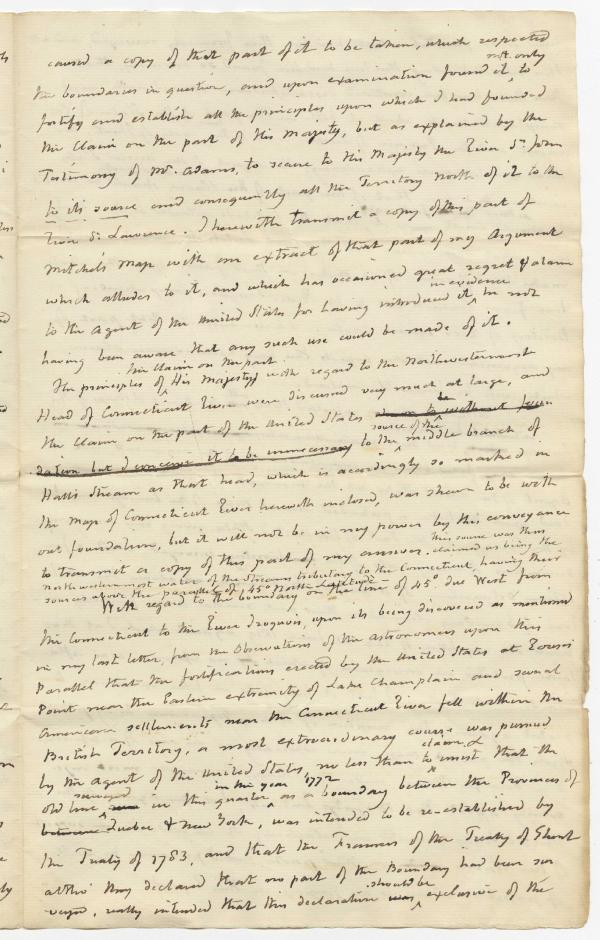 caused a copy of that part of it to be taken, which respected
not only
the boundaries in question, and upon examination found it, to
fortify and establish all the principles upon which I had founded
the Claim on the part of His Majesty, but as explained by the
Testimony of Mr. Adams, to secure to His Majesty the River St. John
to its source and consequently all the Territory North of it to the
River St. Lawrence. I herewith transmit a copy of this part of
Mitchels Map with an extract of that part of my Argument
which alludes to it, and which has occasioned great regret & alarm
in evidence
to the Agent of the United States for having introduced it, he not
having been aware that any such use could be made of it.
the Claim on the part
The principles of His Majesty with regard to the Northwesternmost
Head of Connecticut River were discussed very much at large, and
be
the Claim on the part of the United States shewn to be without foun
source of the
dation but I conceive it to be unnecessary to the middle branch of
Halls Stream as that head, which is accordingly so marked in
the Map of Connecticut River herewith inclosed, was shewn to be with
out foundation, but it will not be in my power by this conveyance
to transmit a copy of this part of my answer. this source was then
claimed as being the
northwesternmost water of the streams tributary to the Connecticut, having their
sources above the parallel of 45° North Latitude
With regard to the boundary on the line of 45° due West from
the Connecticut to the River Iroquois, upon its being discovered as mentioned
in my last letter, from the Observations of the Astronomers upon this
Parallel that the fortifications erected by the United States at Rouses
Point near the Eastern extremity of Lake Champlain and several
American settlements near the Connecticut River fell within the
British Territory, a most extraordinary course was pursued
claim &
by the Agent of the United States, no less than to insist that the
surveyed in the year 1772
old line in this quarter as a boundary between the Provinces of
between Quebec & New York, was intended to be re-established by
the Treaty of 1783, and that the Framers of the Treaty of Ghent
altho' they declared that no part of the Boundary had been sur
should be
veyed, really intended that this declaration was exclusive of the